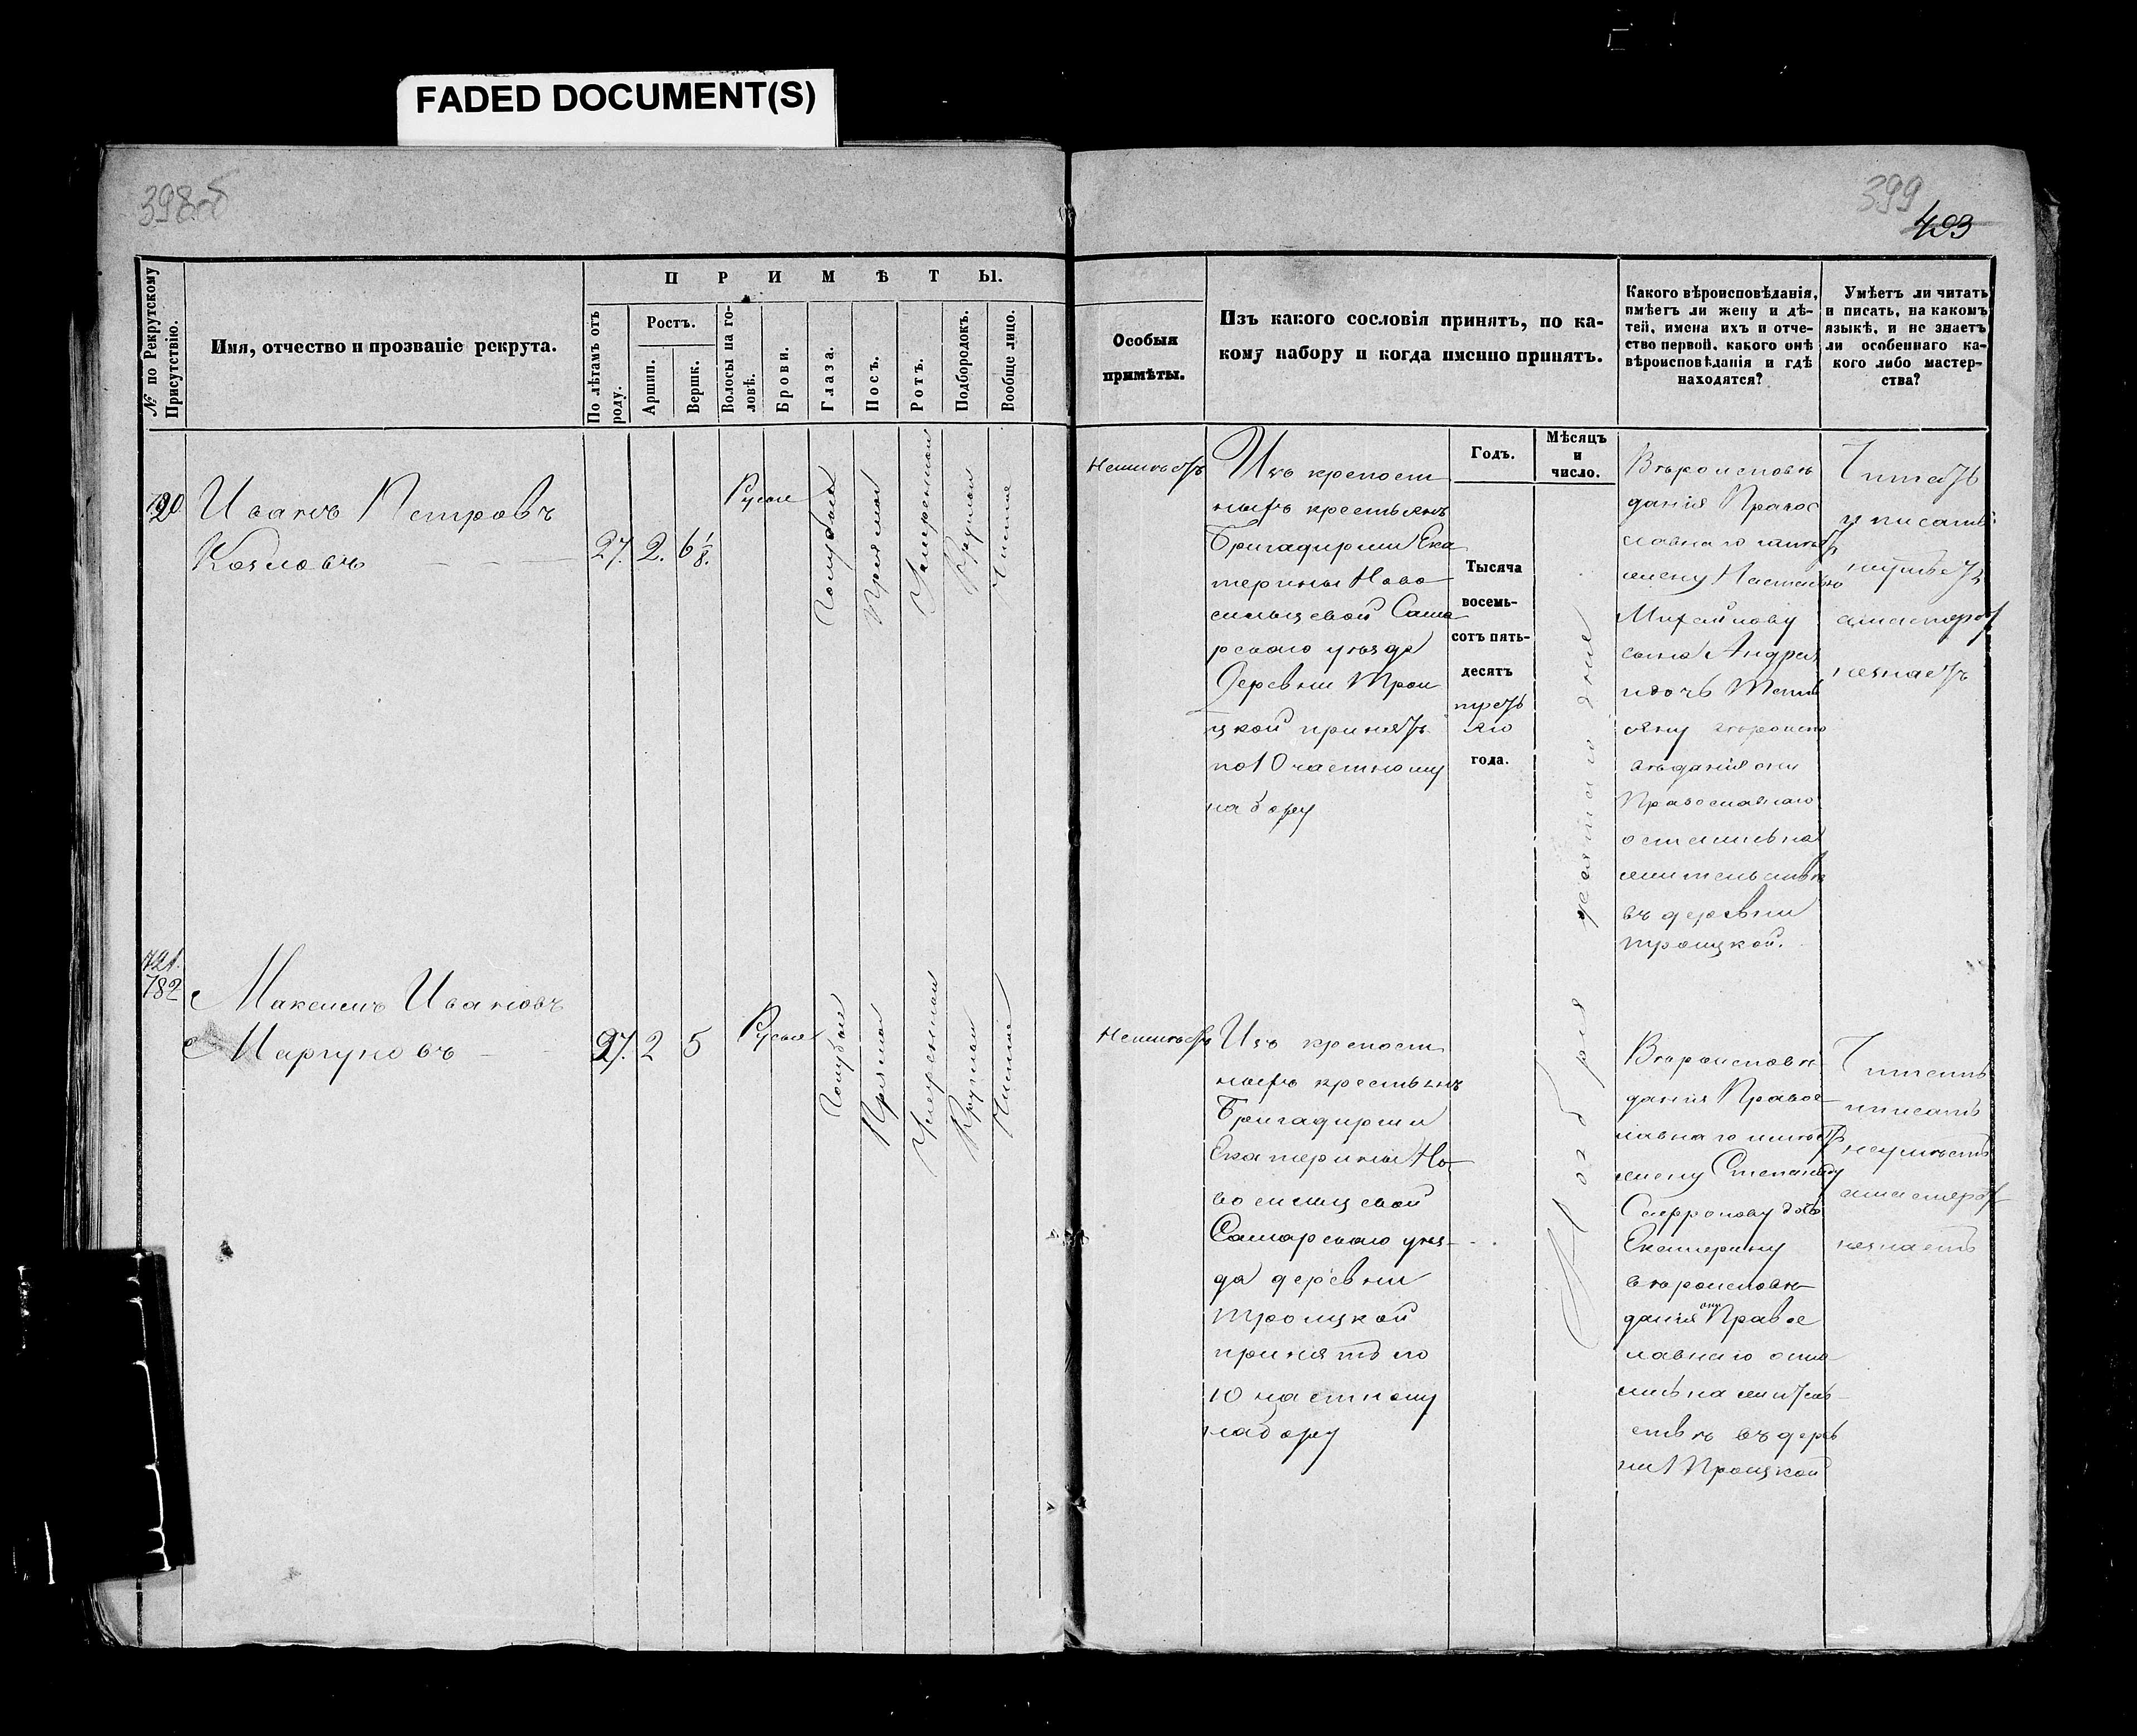 FADED DOCUMENT(S)
398об
399
403
№ по Рекрутскому Присутствію.
Имя, отчество и прозваніе рекрута.
ПРИМѢТЫ.
По лѣтамъ отъ роду.
Ростъ.
Аршин.
Вершк.
Волосы на головѣ.
Брови.
Глаза.
Носъ.
Ротъ.
Подбородокъ.
Вообще лицо.
Особыя
примѣты.
Изъ какого сословія принятъ, по ка-
кому набору и когда именно принятъ.
Какого вѣроисповѣданія,
имѣетъ ли жену и дѣ-
тей, имена ихъ и отче-
ство первой, какого онѣ
вѣроисповѣданія и гдѣ
находятся?
Умѣетъ ли читать
и писать, на какомъ
языкѣ, и не знаетъ
ли особеннаго ка-
кого либо мастер-
ства?
Годъ.
Мѣсяцъ
и
число.
Иванъ Петровъ
Козловъ
27. 2. 6 1/8.
Русые
Голубые
Прямой
Умеренный
Круглый
Чистое
Неимѣетъ
Изъ крепост
ныхъ крестьянъ
Бригадирши Ека
терины Ново
сильцевой Сама
рскаго уѣзда
Деревни Трои
цкой принятъ
по 10 частному
набору
Тысяча
восемь-
сотъ пять-
десятъ
треть
яго
года.
Ноября десятаго дня
Вѣроисповѣ
данія Правос
лавнаго имѣетъ
жену Настасью
Михайлову
сына Андрея
и дочь Тать
яну вѣроиспо
вѣданія они
Православнаго
остались на
жительствѣ
въ деревни
троицкой.
Читать
и писать
неумѣетъ
и мастерст
незнаетъ
421.
782
Максимъ Ивановъ
Маргуновъ
27. 2 5
Русые
Голубые
Прямой
Умеренный
Круглый
Чистое
Неимѣетъ
Изъ крепост
ныхъ крестьянъ
Бригадирши
Екатерины Но-
восильцевой
Самарскаго уѣз-
да деревни
троицкой
принятъ по
10 частному
набору
Вѣроисповѣ
данія Правос
лавнаго имѣетъ
жену Степаниду
Сафронову дочь
Екатерину
вѣроисповѣ-
данія они Правос
лавнаго оста
лись на житель-
ствѣ въ дерев
ни Троицкой
Читать
и писать
неумѣетъ
и мастерст
незнаетъ